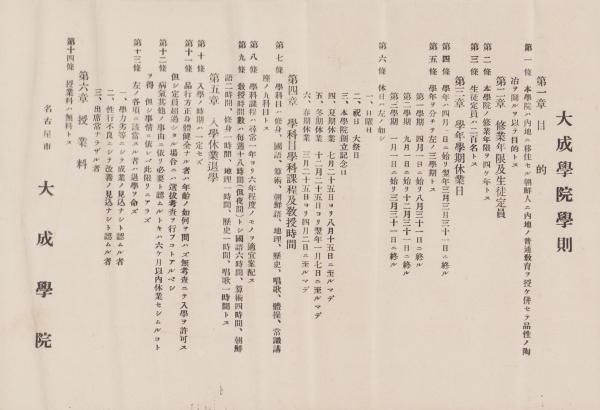 大成學院學則
第一章 目的
第一條 本學院ハ內地ニ移住セル朝鮮人ニ內地ノ普通敎育ヲ授ケ併セテ品性ノ陶
冶ヲ圖ルヲ以テ目的トス
第二章 修業年限及生徒定員
第二條 本學院ノ修業年限ヲ四ケ年トス
第三條 生徒定員ハ二百名トス
第三章 學年學期休業日
第四條 學年ハ四月一日ニ始リ翌年三月三十一日ニ終ル
第五條 學年ヲ分チテ左ノ三學期トス
第一學期 四月一日ニ始リ八月三十一日ニ終ル
第二學期 九月一日ニ始リ十二月三十一日ニ終ル
第三學期 一月一日ニ始リ三月三十一日ニ終ル
第六條 休日ハ左ノ如シ
一、日曜日
二、祝日 大祭日
三、本學院創立記念日
四、夏期休業 七月二十五日ヨリ八月十五日ニ至ルマデ
五、冬期休業 十二月二十五日ヨリ翌年一月七日ニ至ルマデ
六、春期休業 三月二十五日ヨリ四月二日ニ至ルマデ
第四章 學科目學科課程及敎授時間
第七條 學科目ハ修身、國語、算術、朝鮮語、地理、歷史、唱歌、體操、常識講
座ノ九科目トス
第八條 學科課程ハ尋常一年ヨリ六年程度ノモノヲ適宜案配ス
第九條 敎授時間數ハ每週十八時間(但夜間)トシ國語六時間、算術四時間、朝鮮
語二時間、修身一時間、地理一時間、歷史一時間、唱歌一時間トス
第五章 入學休業退學
第十條 入學ノ時期ハ一定セズ
第十一條 品行方正身體健全ナル者ハ年齡ノ如何ヲ問ハズ無考査ニテ入學ヲ許可ス
但シ定員超過シタル場合ニハ選拔考査ヲ行フコトアルベシ
第十二條 病氣其他ノ事由ニ依リ必要ト認ムルトキハ六ケ月以內休業セシムルコト
ヲ得 但シ事情ニ依レバ此限リニアラズ
第十三條 左ノ各項ニ該當スル者ハ退學ヲ命ズ
一、學力劣等ニシテ成業ノ見込ナシト認ムル者
二、性行不良ニシテ改善ノ見込ナシト認ムル者
三、出席常ナラザル者
第六章 授業料
第十四條 授業料ハ無料トス
名古屋市 大成學院